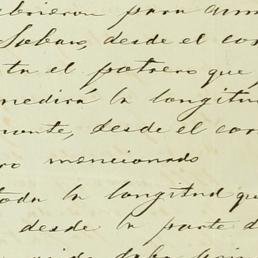 abrieron para
Sabas, desde el co
ta el potrero que
medirá la longitud
nante, desde el cor
ro mencionado
toda la longitud qu
desde la parte d